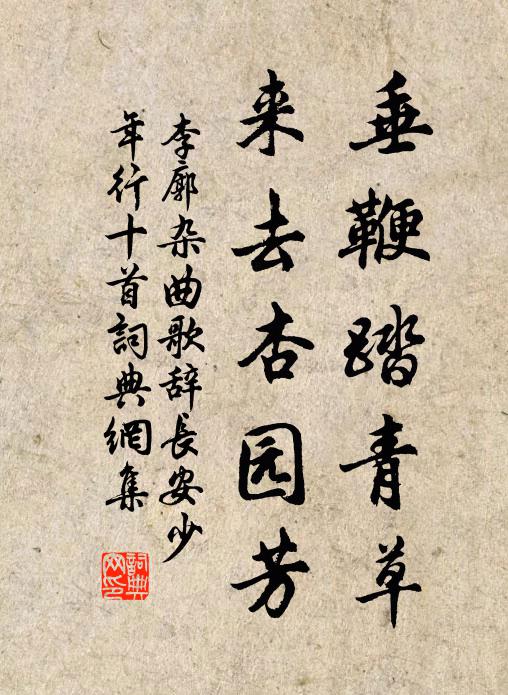 垂鞭踏青草
来去杏园芳
李廓杂曲歌辞长安少
年行十首詞典網集
詞典
网印